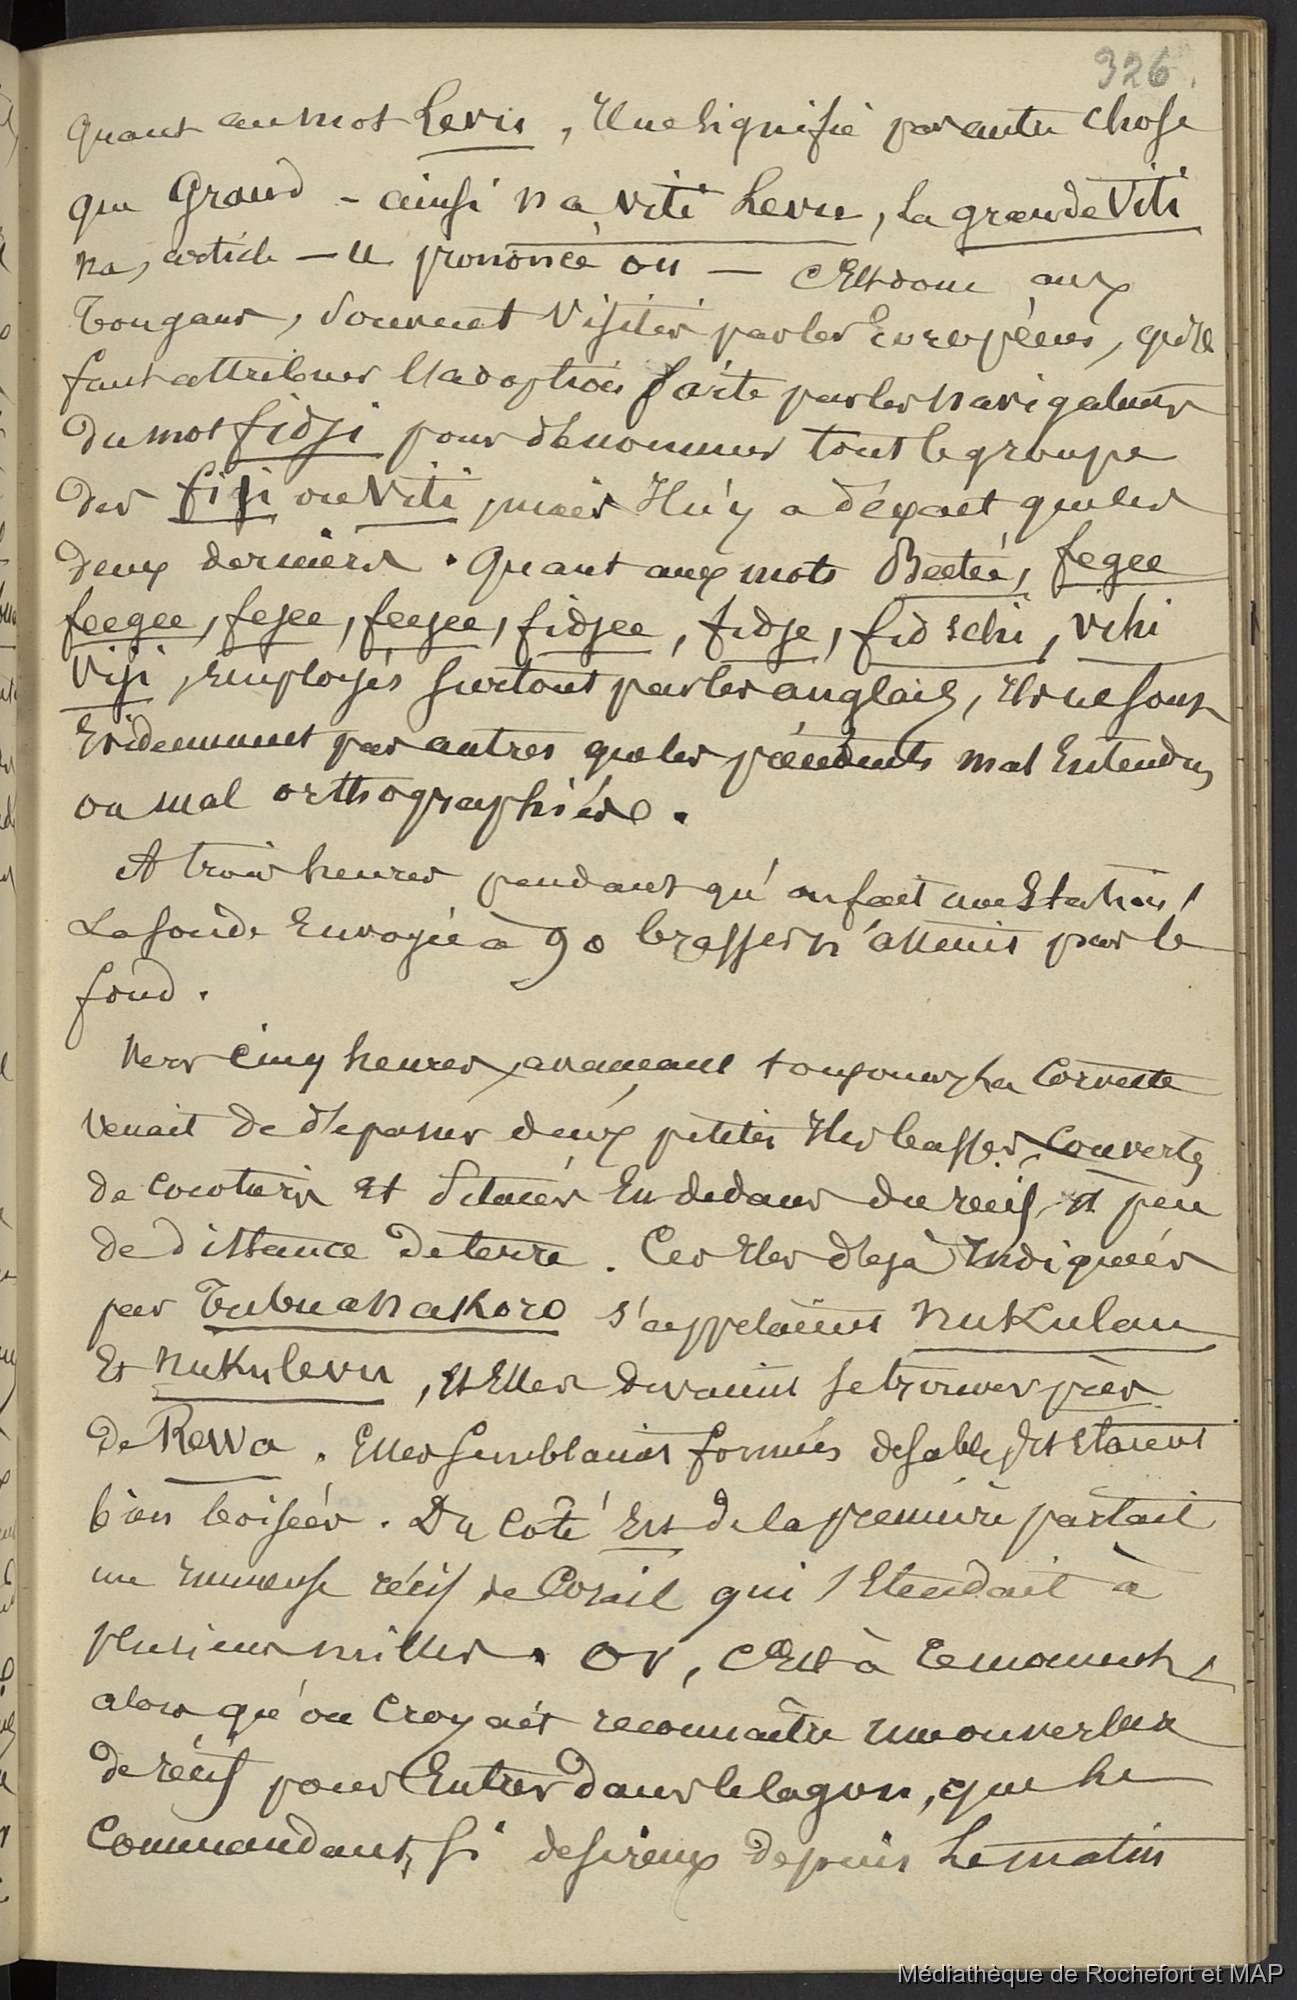 326
quant au mot Levu, Il ne signifie pas autre chose
que Grand - ainsi na viti Levu, la grande Viti
na, article — u prononcé ou — C'Est donc aux
Tongans, souvent Visités par les Européens, qu'il
faut attribuer l'adoption faite par les navigateurs
du mot fidji pour dénommer tout le groupe
des fiji ou Viti, mais Il n'y a d'exact que les
deux derniers. Quant aux mots Beetee, fegee
feegee, fejee, feejee, fidjee, fidje, fidschi, vihi
Viji, Employés surtout par les anglais, Ils ne sont
Evidemment pas autres que les précédents mal Entendus
ou mal orthographiés.
A trois heures pendant qu'on fait une Station,
La sonde Envoyée à 90 brasses n'atteint pas le
fond.
Vers cinq heures, avançant toujours, La Corvette
venait de dépasser deux petites Iles basses, couvertes
de cocotiers et situées En dedans du récif, à peu
de distance de terre. Ces Iles déjà Indiquées
par Tubuanakoro s'appelaient Nukulau
Et Nukulevu, et Elles devaient se trouver près
de Rewa. Elles semblaient formées de sable, Et Etaient
bien boisées. Du côté Est de la première partait
un Immense récif de Corail qui s'Etendait à
plusieurs milles. Or, c'Est à ce moment,
alors qu'on Croyait reconnaître une ouverture
de récif pour Entrer dans le lagon, que Le
Commandant, si desireux depuis Le matin
Médiathèque de Rochefort et MAP